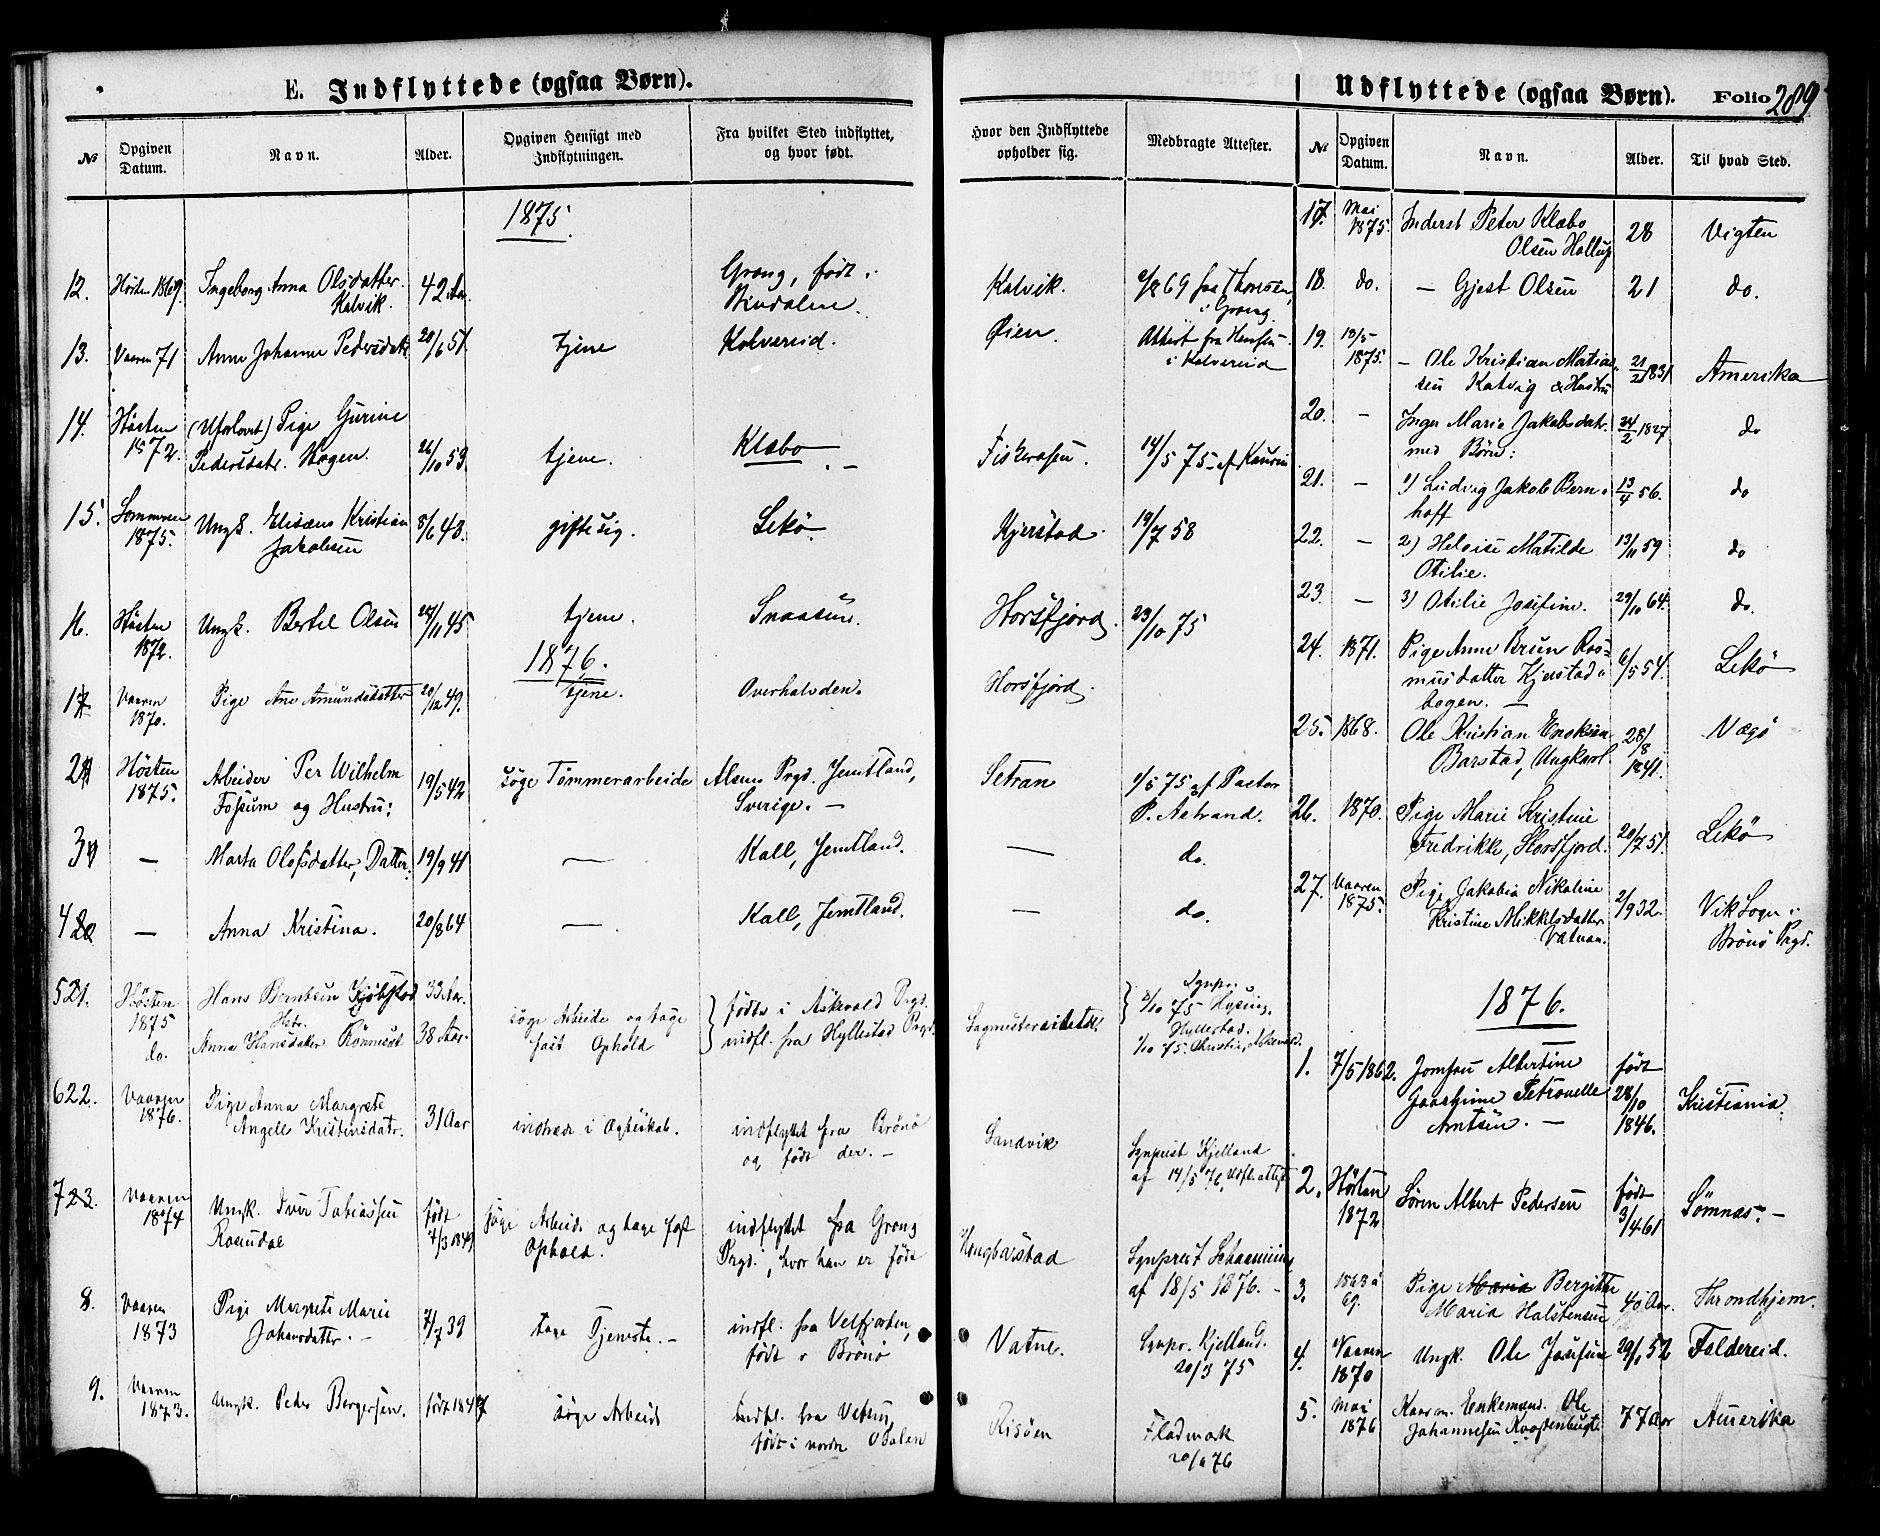 E. Indflyttede (ogsaa Børn).
№
Opgiven
Datum.
Navn.
Alder.
Opgiven Hensigt med
Indflytningen.
Fra hvilket Sted indflyttet,
og hvor født.
1875.
12. Høsten 1869. Ingeborg Anna Olsdatter 42 Aar. Grong, født i
Kalvik. Bindalen.
13. Vaaren 71 Anne Johanna Pedersdatr. 20/6 51. tjene Kolvereid.
14. Høsten (Uforlovet) Pige Gurine
1872. Pedersdatr. Hagen. 26/10 53 tjene. Klæbo
15. Sommeren Ungk. Elisæus Kristian 8/6 43. giftesig. Lekö
1875. Jakobsen
16. Høsten Ungk. Bertel Olsen 24/11 45 tjene. Snaasen.
1872.
1876.
17 Vaaren Pige Ane Amundsdatter 20/12 49. tjene. Overhalvden.
1870.
2 Høsten Arbeider Per Wilhelm 19/5 42 söge Tömmerarbeide Alsens Prgd. Jemtland,
1875. Fossum og Hustru: Sverige. —
3 — Marta Olofsdatter, Datter: 19/9 41 — Kall, Jemtland.
4 20 — Anna Kristina. 20/8 64 — Kall, Jemtland.
5 21. Høsten Hans Berntsen 33 Aar. födte i Askvold Prgd.
1875 Hstr. söge Arbeide og tage indfl. fra Hyllestad Prgd.
do. Anna Hansdatter 38 Aar. fast Ophold
6 22. Vaaren Pige Anna Margrete
1876. Angell Kristensdatr. 31 Aar indtræde i Ægteskab. indflyttet fra Brönö
og født der. —
7 23. Vaaren Ungk. Iver Tobiassen født söge Arbeide og tage fast indflyttet fra Grong
1874 Rosendal 7/3 1849 Ophold. Prgd., hvor han er født
8. Vaaren Pige Margrete Marie 7/7 39 tage Tjeneste. — indfl. fra Velfjorden,
1873 Johansdatter. — født i Brönö
9. Vaaren Ungk. Peder Bergersen. født 1847 söge Arbeide Indfl. fra Vefsen,
1873. født i nordre Odalen
Udflyttede (ogsaa Børn). Folio 289
Hvor den Indflyttede
opholder sig.
Medbragte Attester.
№
Opgiven
Datum.
Navn.
Alder.
Til hvad Sted.
Kalvik. 69 fra Thonsen
i Grong.
Øien. Attest fra Hensen
i Kolvereid
Fiskerosen. 14/5 75 af Kaurin
Kjerstad. 19/7 58
Horsfjord. 23/10 75
Horsfjord.
Setran 1/5 75 af Pastor
P. Åstrand.
— do.
— do.
Synpr.
2/10 75 Hysing,
Hyllestad.
1/10 75. Christie, Askevold.
Sandvik Synprest Kjelland
af 14/5 76, Udfl. attest
Hongbarstad Synprest Schaanning
af 18/5 1876. —
Vatne. Synpr. Kjelland.
20/3 75
Risöen Fladmark
76
17. Mai Inderst Peter Klæbo 28 Vigten
1875. Olsen Hallup
18. do. — Gjest Olsen 21 do.
19. 13/5
1875. — Ole Kristian Matias- 21/2 1831 Amerika
sen Katvig & Hustru
20. — Inger Marie Jakobsdatr. 24/2 1827 do
med Børn:
21. — 1) Ludvig Jakob Bern- 13/4 56. do
hoff
22. — 2) Heloise Matilde 13/11 59 do
Otilie.
23. — 3) Otilie Josefine. 29/10 64. do.
24. 1871. Pige Anne Brun Ras- 6/5 54. Lekö
musdatter Kjerstad-
bogen. —
25. 1868. Ole Kristian Enoksen 28/8 Vægö
Barstad, Ungkarl. 1841.
26. 1870. Pige Marie Kristine
Fredrikke, Horsfjord. 20/7 51. Lekö
27. Vaaren Pige Jakobia Nikoline 2/9 32. Vik Sogn i
1875. Kristine Mikkelsdatter Brönö Prgd.
Vatnan.
1876.
1. 7/5 1862. Jomfru Albertine født
Petronelle 28/10 Kristiania.
Arntsen. — 1846.
2. Høsten Sören Albert Pedersen født Sömnas. —
1872 3/4 61
3. 1868 à Pige Maria Bergitte
69. Maria Halstensen 40 Aar. Throndhjem.
4. Vaaren Ungk. Ole Josefsen 29/1 52 Foldereid.
1870
5. Mai Kaarm. Enkemand Ole 77 Aar Amerika
1876 Johannesen